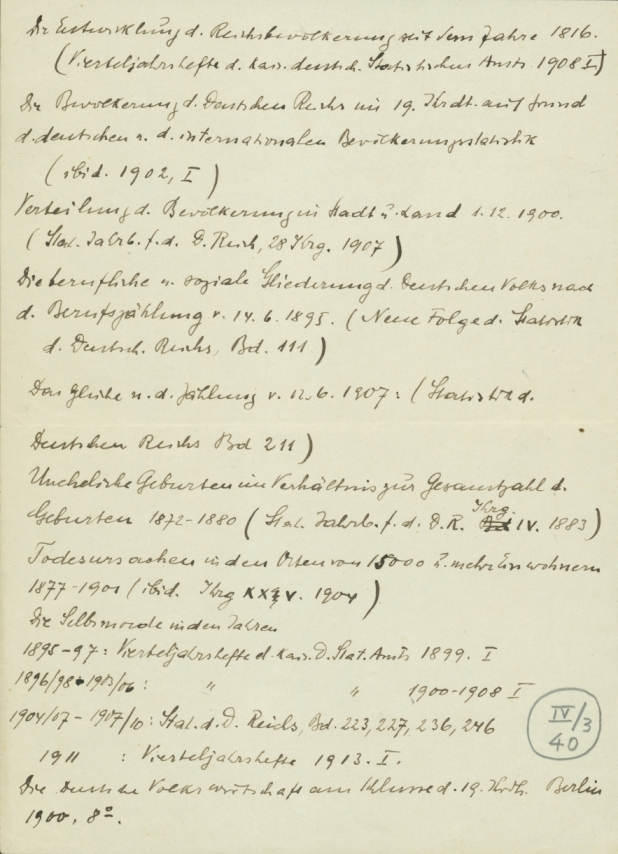 Die Entwicklung d. Reichsbevölkerung seit dem Jahre 1816.
(Vierteljahrshefte d. Kais. deutsch. Statistischen Amts 1908 I)
Die Bevölkerung d. Deutschen Reichs im 19. Jhrdt. auf Grund
d. deutschen u. d. internationalen Bevölkerungsstatistik
(ibid. 1902, I)
Verteilung d. Bevölkerung in Stadt u. Land 1.12.1900.
(Stat. Jahrb. f. d. D. Reich, 28 Jhrg. 1907)
Die berufliche u. soziale Gliederung d. Deutschen Volks nach
d. Berufszählung v. 14.6.1895. (Neue Folge d. Statistik
d. Deutsch. Reichs, Bd. 111)
Das gleiche n. d. Zählung v. 12.6.1907: (Statistik d.
Deutschen Reichs Bd 211)
Uneheliche Geburten im Verhältnis zur Gesamtzahl d.
Jhrg.
Geburten 1872-1880 (Stat. Jahrb. f. d. D. R. IV. 1883)
Todesursachen in den Orten von 15000 u. mehr Einwohnern
1877-1901 (ibid. Jhrg 1904)
Die Selbstmorde in den Jahren
1895-97: Vierteljahrshefte d. Kais. D. Stat. Amts 1899. I
1896/98 1903/06: " " 1900-1908 I
1904/07 - 1907/10: Stat. d. D. Reichs, Bd. 223, 227, 236, 246
1911 : Vierteljahrshefte 1913. I.
Die Deutsche Volkswirtschaft am Schlusse d. 19. Jhrdt. Berlin
1900, 8°.
IV/3
40